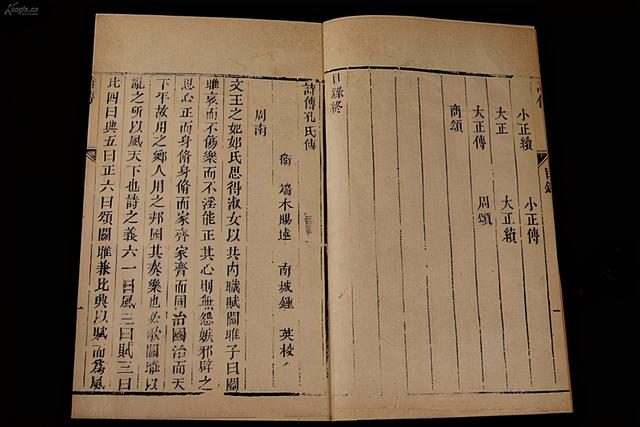 小正續 小正傳
大正 大正續
大正傳 周頌
商頌
目錄終
詩傳孔氏傳
衛 端木賜述 南城鍾 英校
周南
文王之妃姒氏思得淑女以共內職賦關雎子曰關
雎哀而不傷樂而不淫能正其心則無怨嫉邪辟之
思心正而身脩身脩而家齊家齊而國治國治而天
下平故用之鄉人用之邦國其奏樂也必歌關雎以
亂之所以風天下也詩之義六一曰風二曰賦三曰
比四曰興五曰正六曰頌關雎兼比興以賦而為風